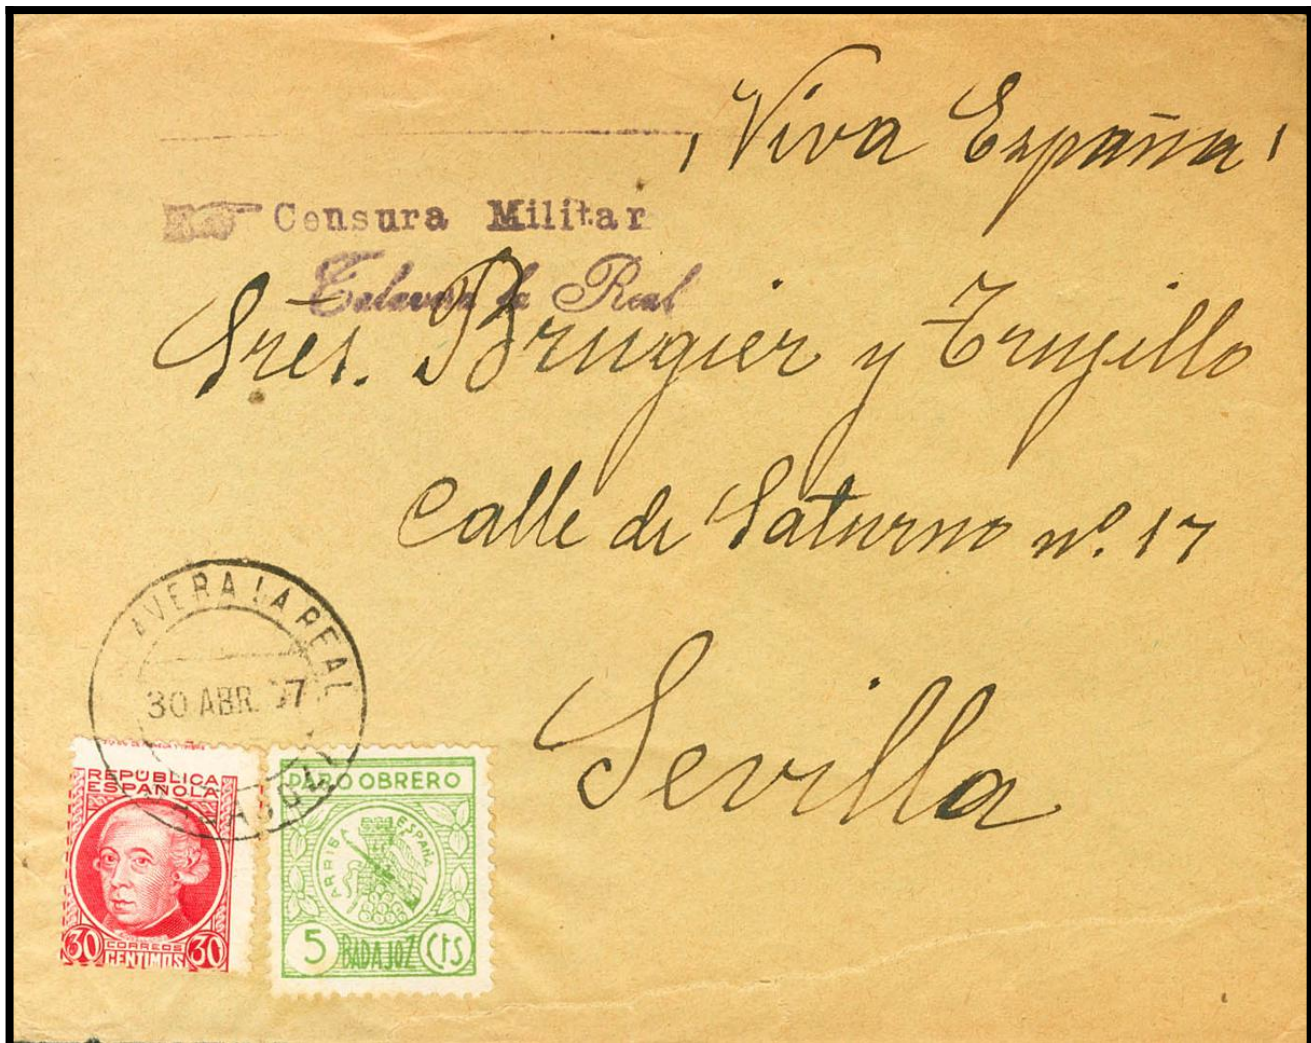 ¡Viva España!
Censura Militar
Talavera la Real
Sres. Brugier y Trujillo
Calle de Saturno nº. 17
Sevilla
AVERA LA REAL
30 ABR. 37
REPÚBLICA
ESPAÑOLA
CORREOS
30 CENTIMOS 30
PARO OBRERO
ARRIBA ESPAÑA
5 BADAJOZ Cts